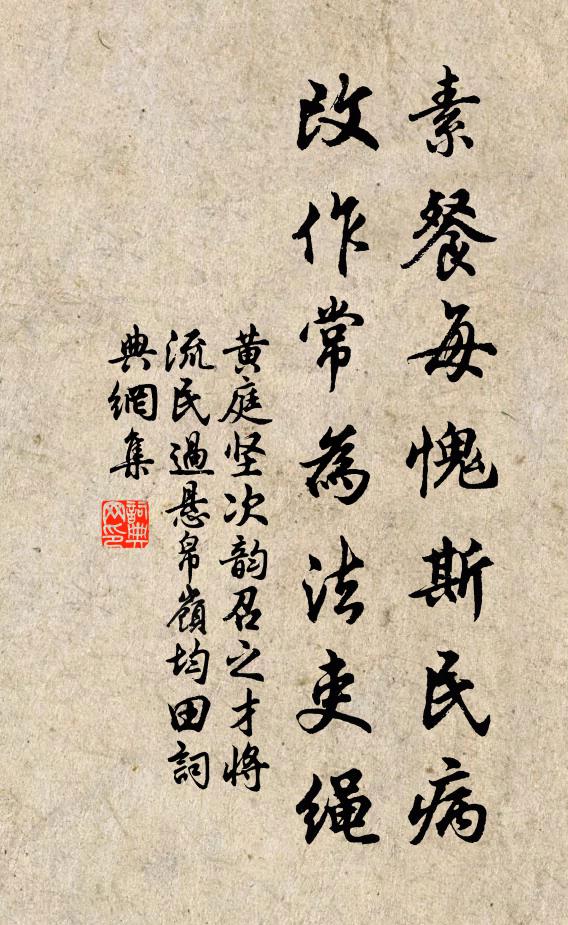 素餐每愧斯民病
改作常為法吏绳
黄庭坚次韵召之才将
流民過悬帛嶺均田詞
典網集
詞典网印